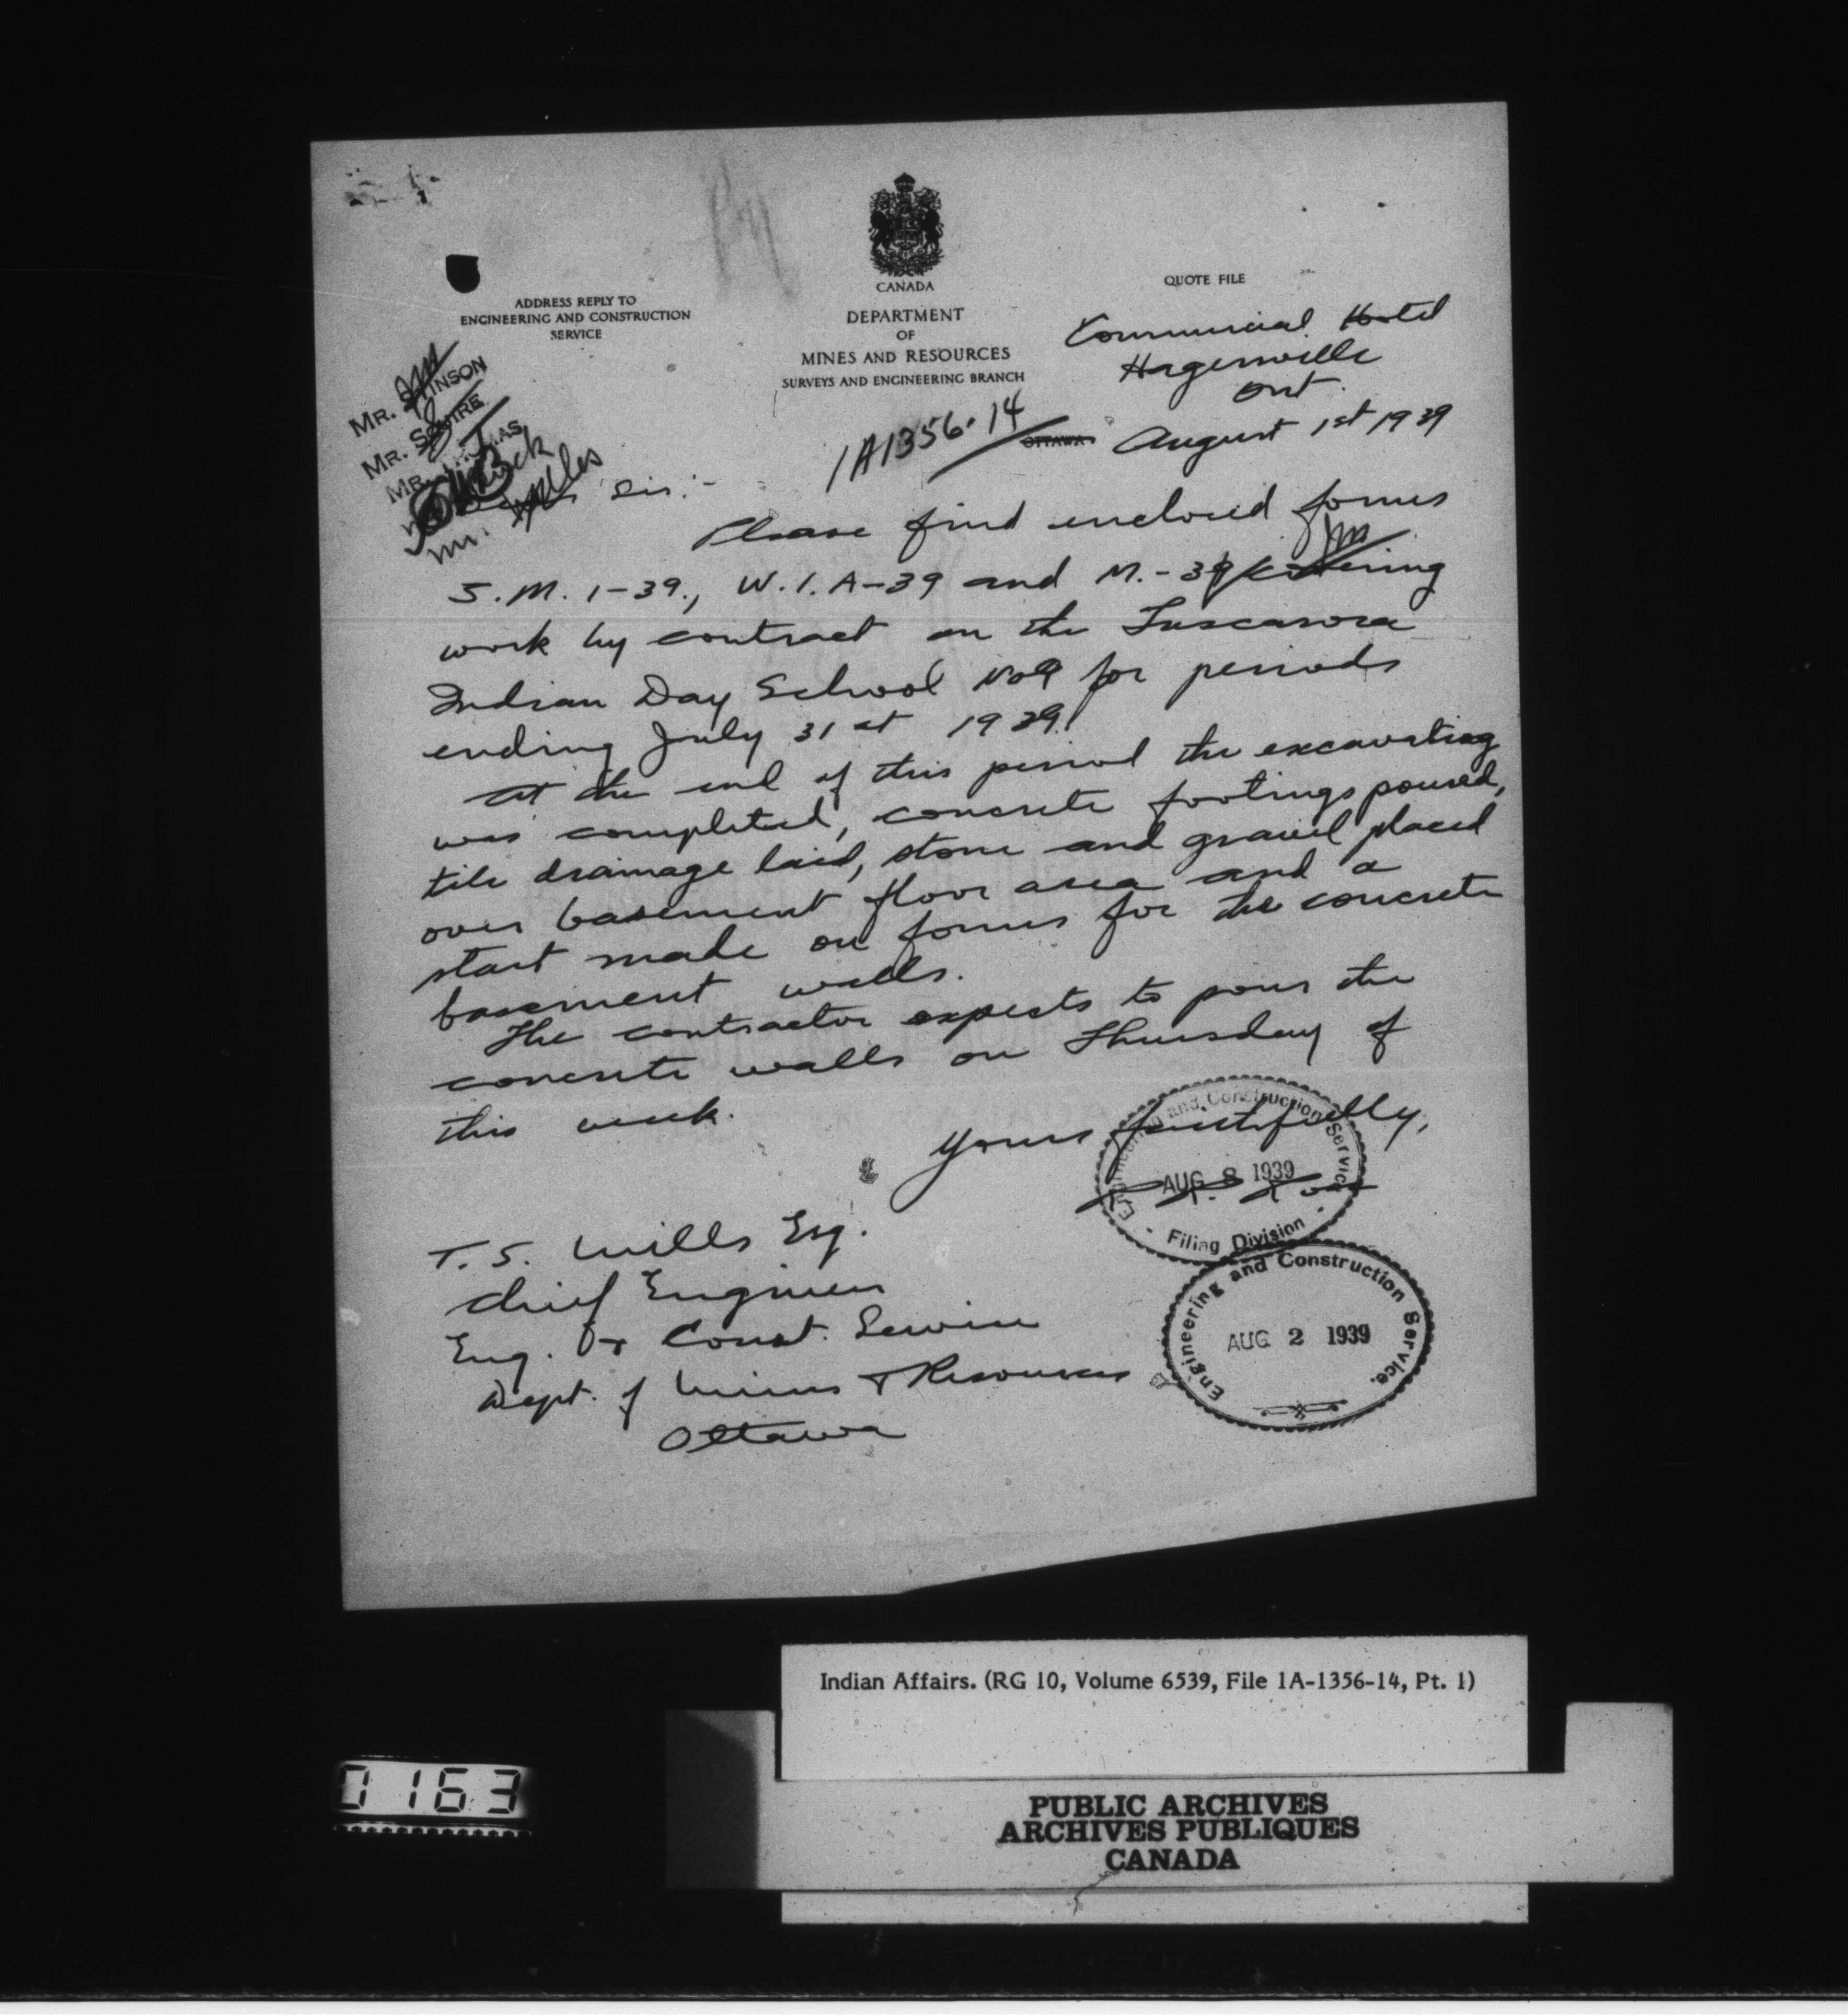 CANADA
ADDRESS REPLY TO
ENGINEERING AND CONSTRUCTION
SERVICE
DEPARTMENT
OF
MINES AND RESOURCES
SURVEYS AND ENGINEERING BRANCH
QUOTE FILE
Commercial Hotel
Hagersville
Ont.
1A1356-14
OTTAWA August 1st 1939
MR.
MR. SQUIRE
MR.
Mr.
Sir:-
Please find enclosed forms
S.M. 1-39., W.1.A-39 and M.-39 covering
work by contract on the Tuscarora
Indian Day School No 9 for periods
ending July 31st 1939.
At the end of this period the excavating
was completed, concrete footings poured,
tile drainage laid, stone and gravel placed
over basement floor area and a
start made on forms for the concrete
basement walls.
The contractor expects to pour the
concrete walls on Thursday of
this week.
Yours faithfully,
Engineering and Construction Service
AUG 8 1939
Filing Division
T. S. Mills Esq.
Chief Engineer
Eng. & Const. Service
Dept. of Mines & Resources
Ottawa
Engineering and Construction Service.
AUG 2 1939
Indian Affairs. (RG 10, Volume 6539, File 1A-1356-14, Pt. 1)
0163
PUBLIC ARCHIVES
ARCHIVES PUBLIQUES
CANADA